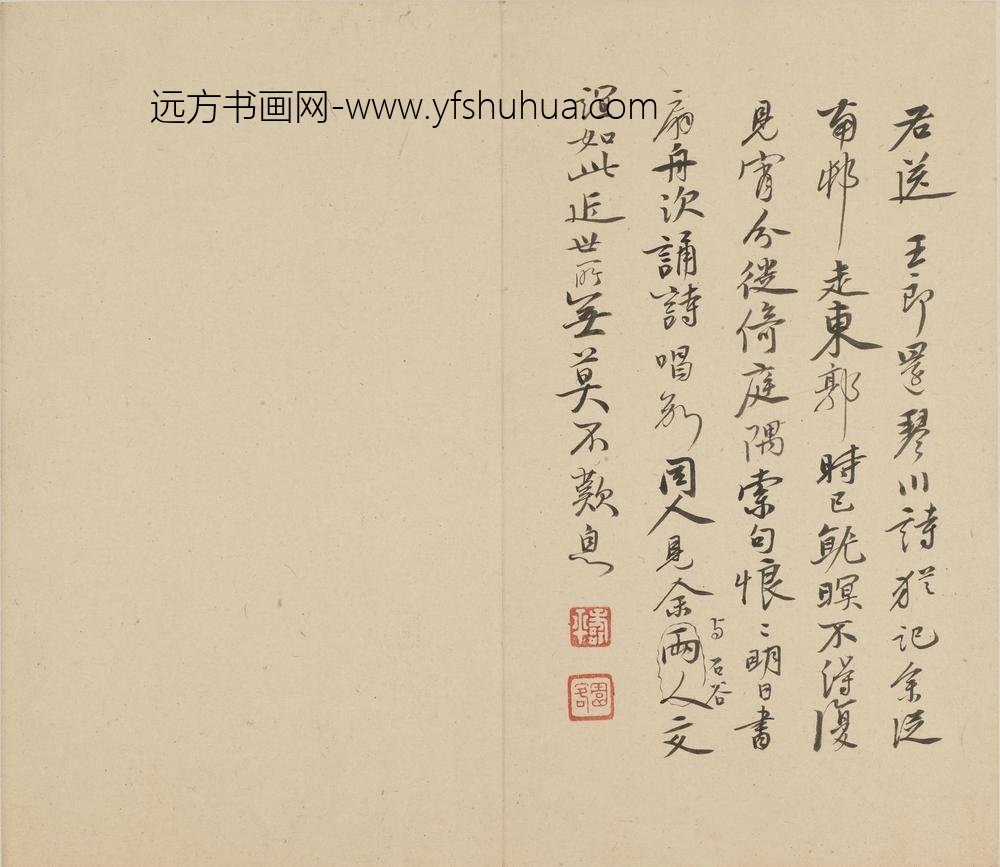 右送 王郎還琴川詩猶記余從
南邨走東郭時已就暝不得復
見宵分徙倚庭隅索句悵〻明日書
扇舟次誦詩唱別同人見余兩人交
与石谷
誼如此近世所無莫不歎息
壽平
園客
远方书画网-www.yfshuhua.com